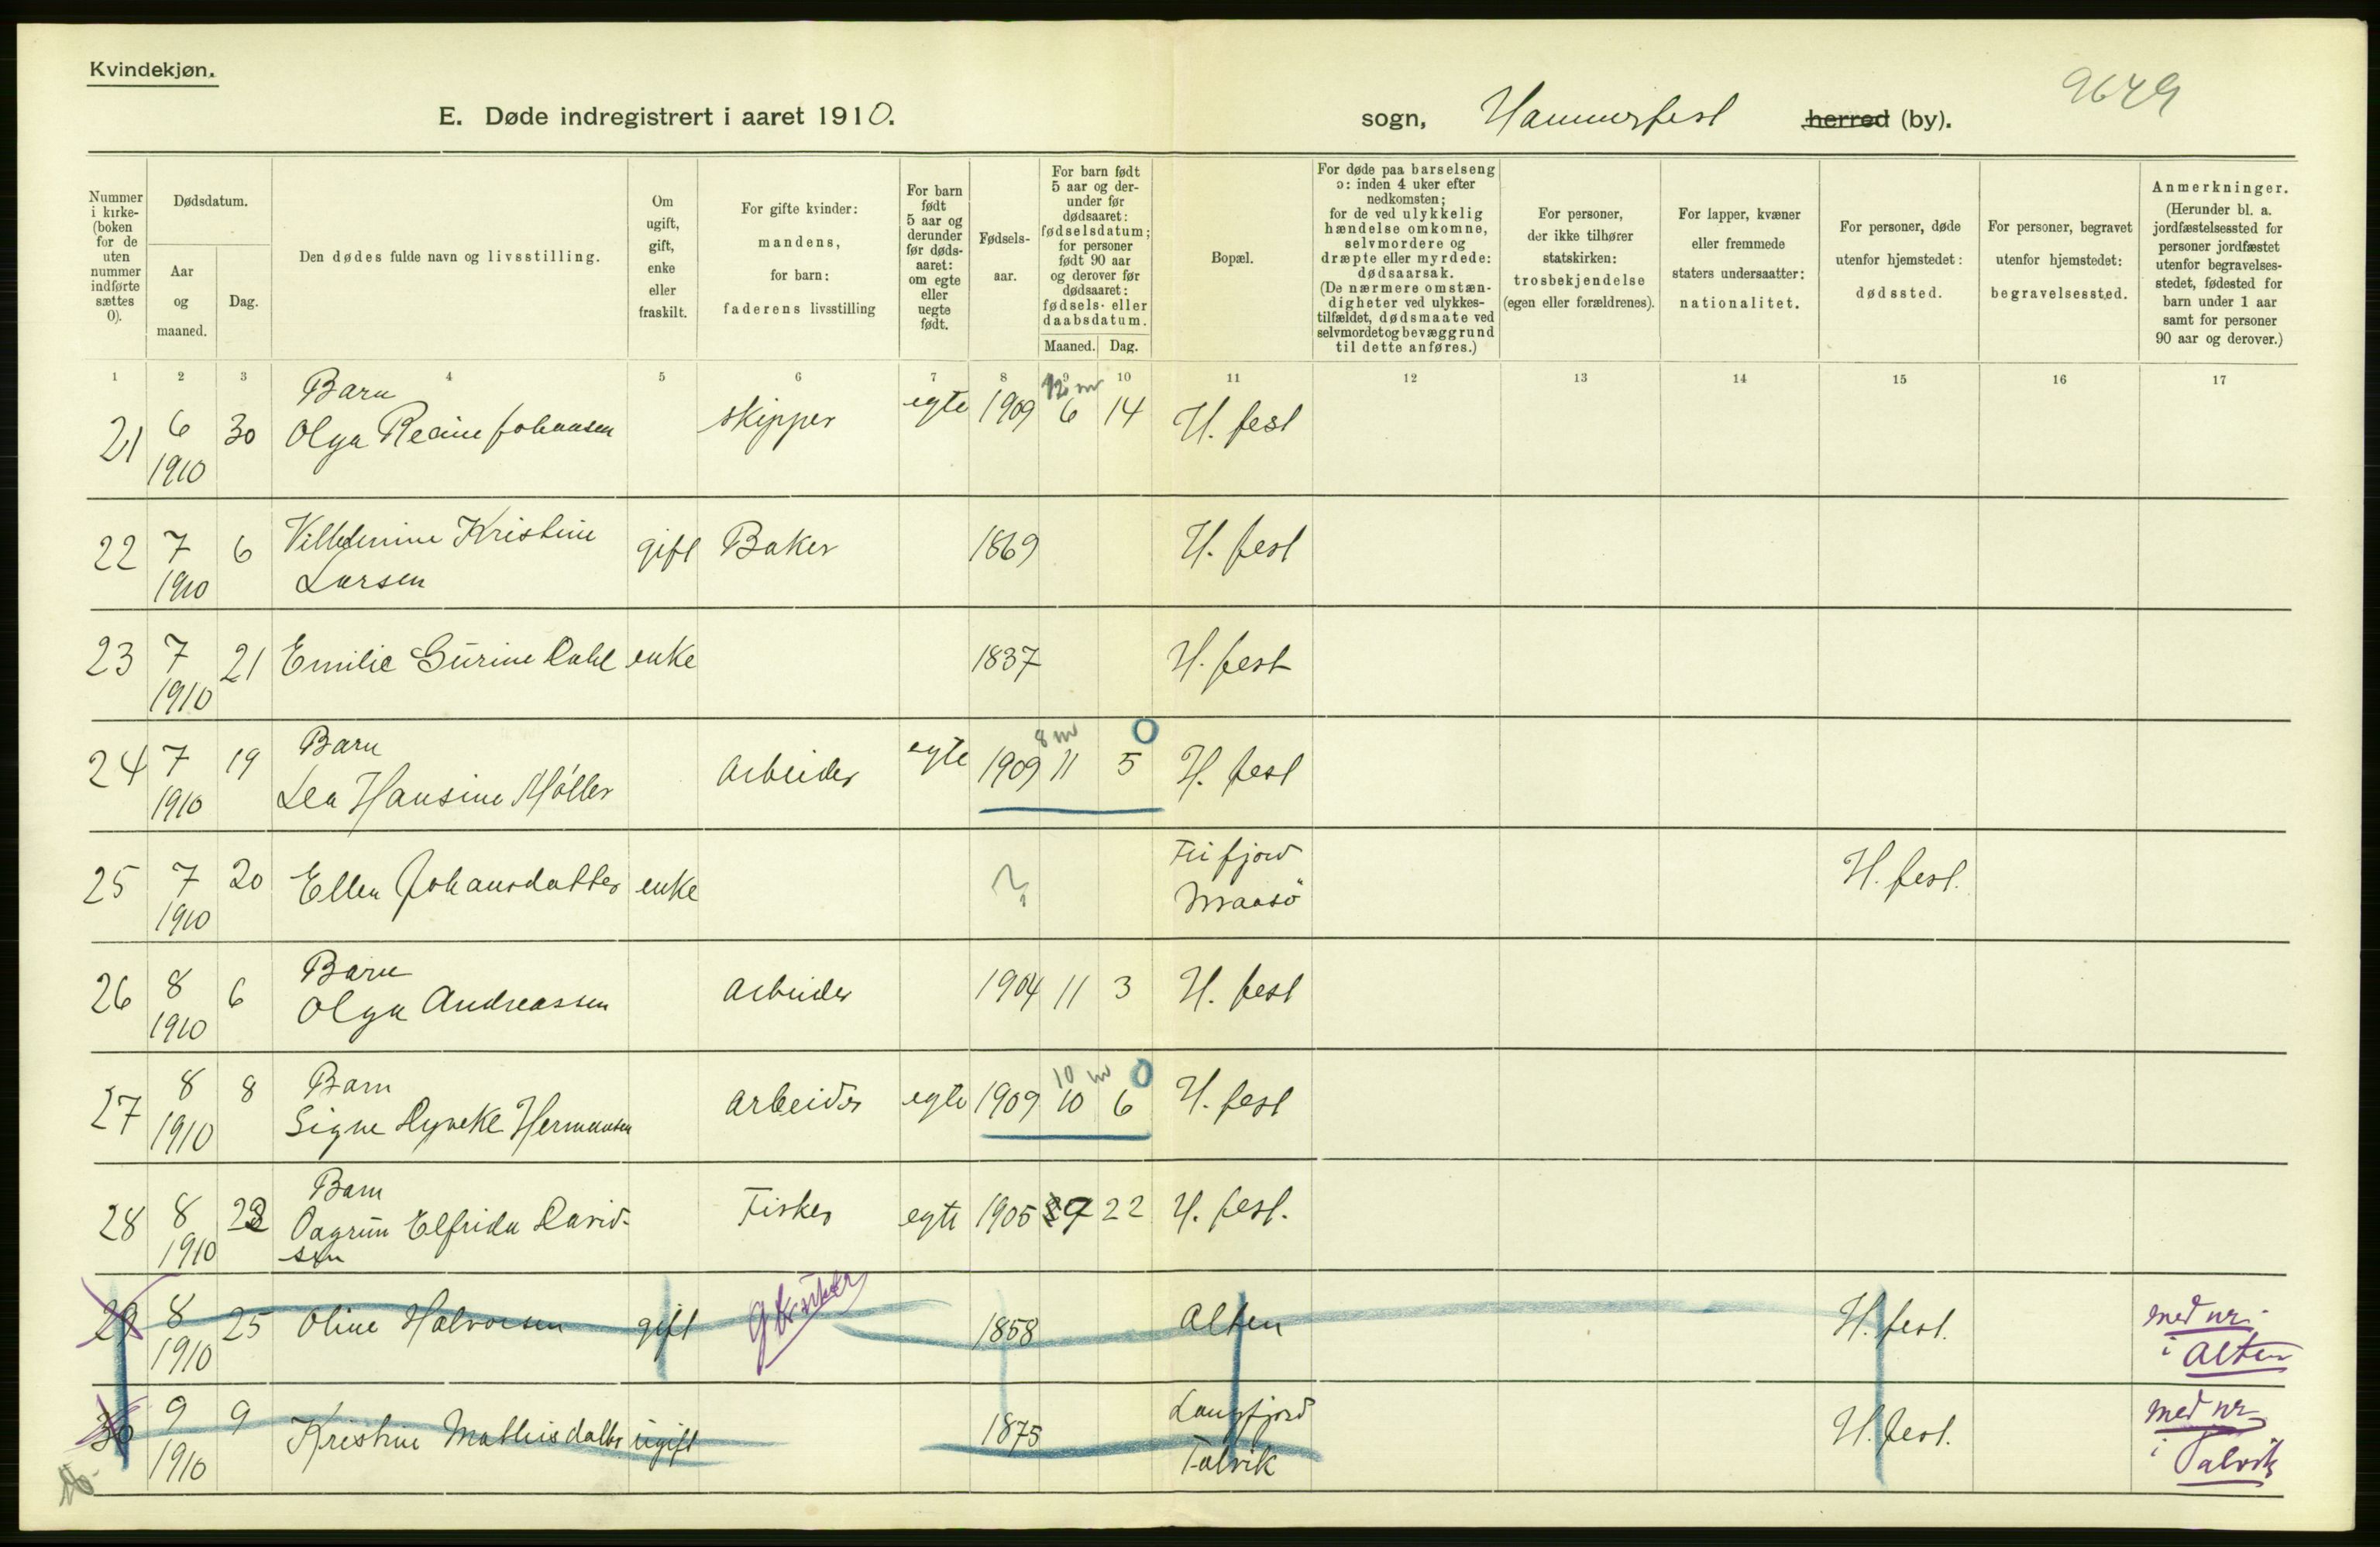 Kvindekjøn.
E. Døde indregistrert i aaret 1910.
sogn, Hammerfest herred (by).
9649
Nummer i kirke- (boken for de uten nummer indførte sættes 0).
Dødsdatum.
Aar og maaned.
Dag.
Den dødes fulde navn og livsstilling.
Om ugift, gift, enke eller fraskilt.
For gifte kvinder: mandens, for barn: faderens livsstilling
For barn født 5 aar og derunder før døds- aaret: om egte eller uegte født.
Fødsels- aar.
For barn født 5 aar og der- under før dødsaaret: fødselsdatum; for personer født 90 aar og derover før dødsaaret: fødsels- eller daabsdatum.
Maaned. Dag.
Bopæl.
For døde paa barselseng ɔ: inden 4 uker efter nedkomsten; for de ved ulykkelig hændelse omkomne, selvmordere og dræpte eller myrdede: dødsaarsak. (De nærmere omstæn- digheter ved ulykkes- tilfældet, dødsmaate ved selvmordet og bevæggrund til dette anføres.)
For personer, der ikke tilhører statskirken: trosbekjendelse (egen eller forældrenes).
For lapper, kvæner eller fremmede staters undersaatter: nationalitet.
For personer, døde utenfor hjemstedet: dødssted.
For personer, begravet utenfor hjemstedet: begravelsessted.
Anmerkninger. (Herunder bl. a. jordfæstelsessted for personer jordfæstet utenfor begravelses- stedet, fødested for barn under 1 aar samt for personer 90 aar og derover.)
1 2 3 4 5 6 7 8 9 10 11 12 13 14 15 16 17
Barn 12 m
21 6 30 Olga Johansen skipper egte 1909 6 14 H. fest
1910
22 7 6 Vilhelmine Kristine gift Baker 1869 H. fest
1910 Larsen
23 7 21 Emilie Gurine Dahl enke 1837 H. fest
1910
Barn 8 m 0
24 7 19 Lea Hansine Møller Arbeider egte 1909 11 5 H. fest
1910
25 7 20 Ellen Johansdatter enke ? Fifjord H. fest.
1910 Maasö
Barn
26 8 6 Olga Andreassen Arbeider 1904 11 3 H. fest
1910
Barn 10 m 0
27 8 8 Signe Dyveke Hermansen Arbeider egte 1909 10 6 H. fest
1910
Barn
28 8 Dagrun Elfrida David- Fisker egte 1905 9 22 H. fest.
1910 sen
29 8 25 Oline Halvorsen gift 1858 Alten H. fest. med nr.
1910 i Alten
30 9 9 Kristine Mathisdatter ugift 1875 Langfjord H. fest. med nr.
1910 Talvik i Talvik